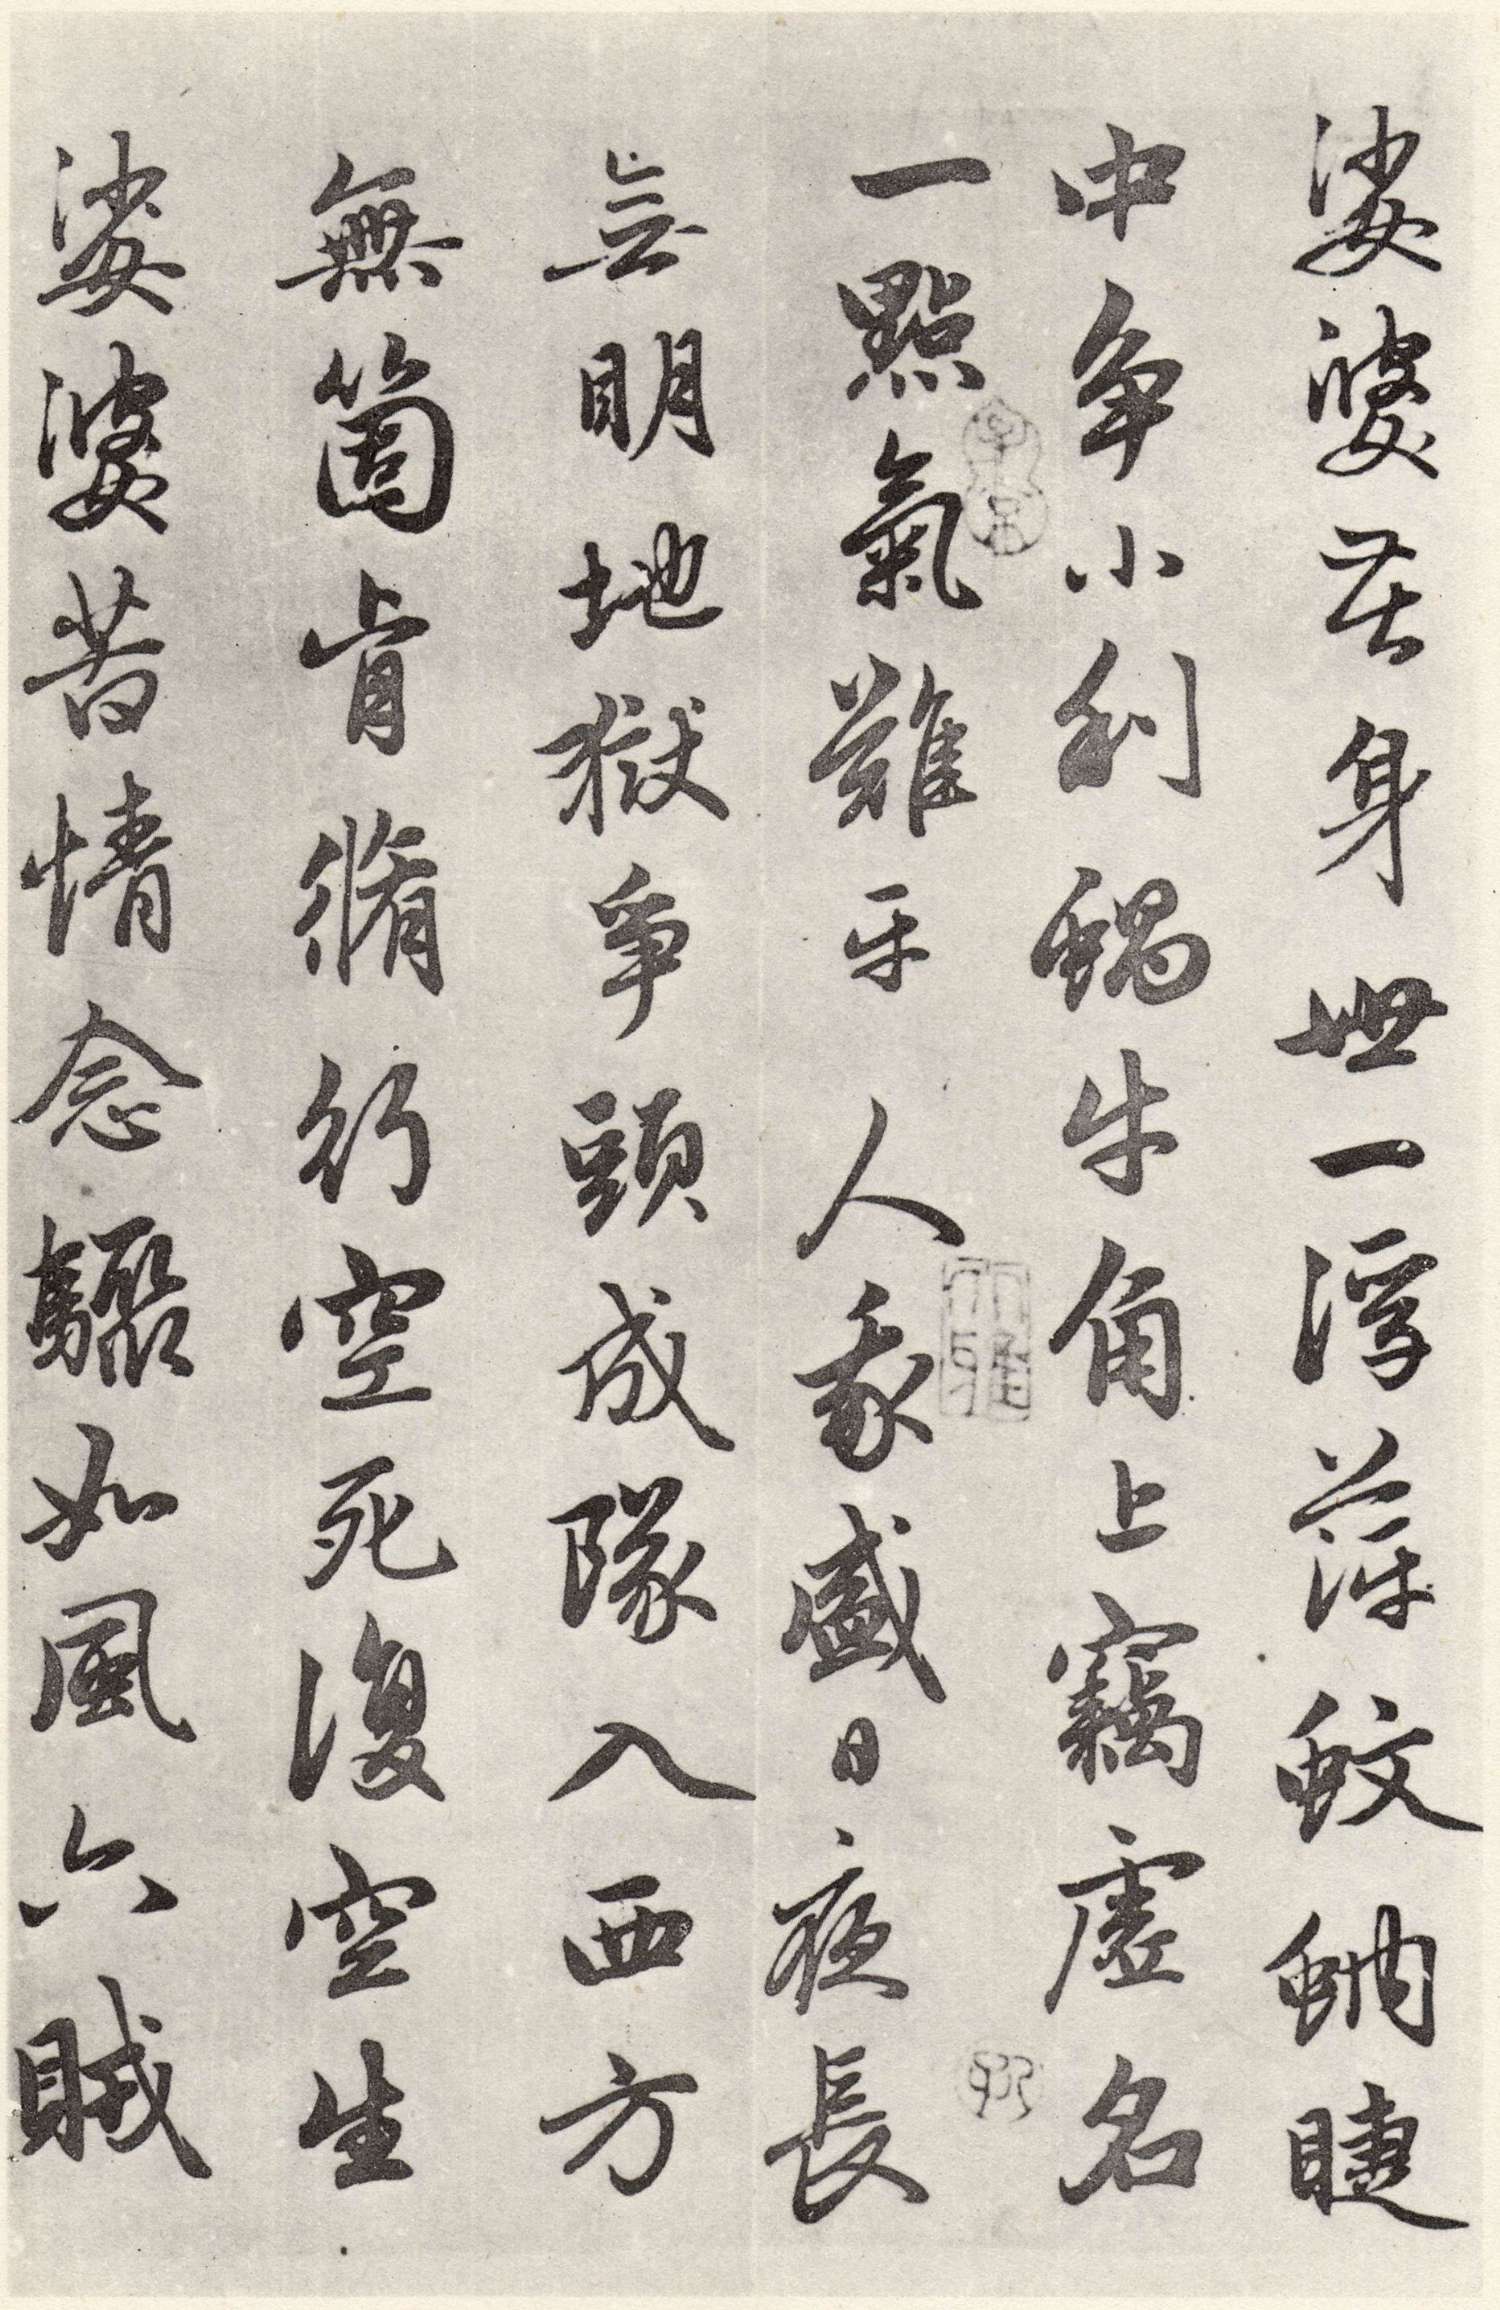 娑婆苦身世一浮萍蚊蚋睫
中爭小利蝸牛角上竊虛名
一點氣難平人我盛日夜長
無明地獄爭頭成隊入西方
無箇肯脩行空死復空生
娑婆苦情念驟如風六賊
子京